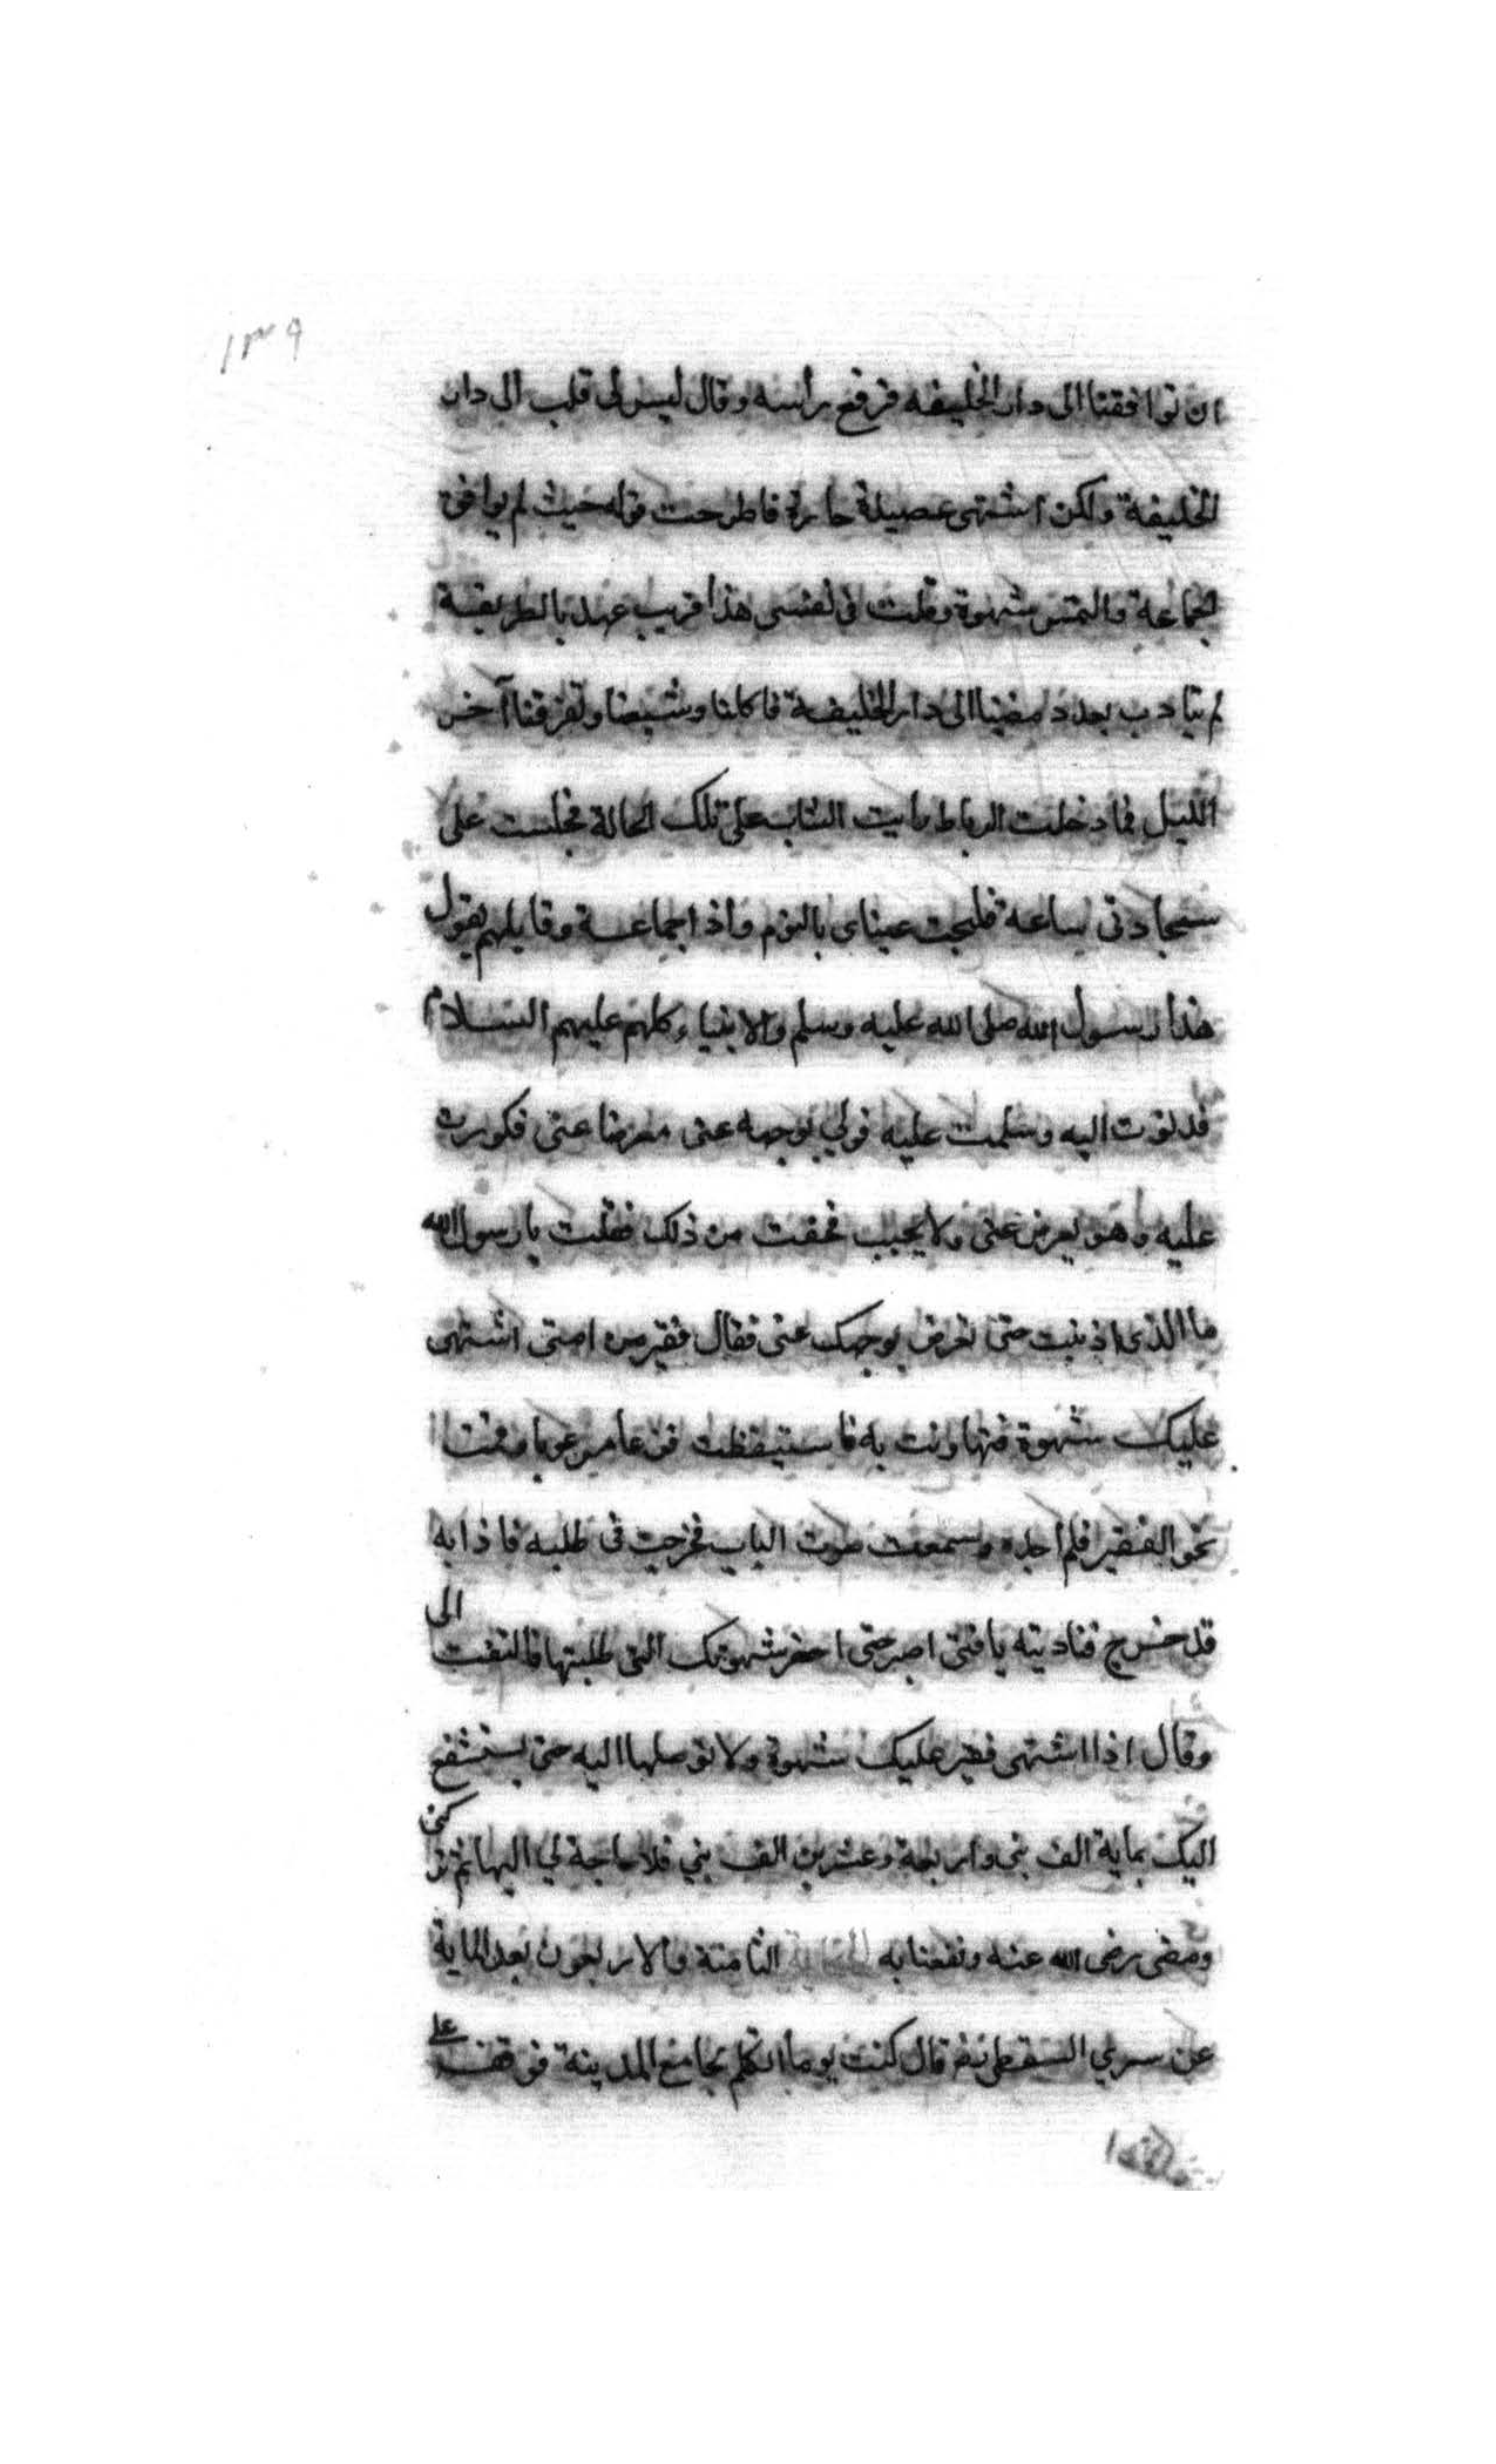 ١٣٩
ان توافقنا الى دار الخليفه فرفع رأسه وقال ليس لى قلب الى دار
الخليفة ولكن اشتهى عصيدة حارة فاطرحت قوله حيث لم يوافق
الجماعة والتمس شهوة وقلت فى نفسى هذا قريب عهد بالطريقة
لم يتادب بعد ومضينا الى دار الخليفة فاكلنا وشبعنا وتفرقنا آخر
الليل فما دخلت الرباط رايت الشاب على تلك الحالة فجلست على
سجادتى ساعة فلجت عيناى بالنوم واذا جماعة وقايلهم يقول
هذا رسول الله صلى الله عليه وسلم والانبياء كلهم عليهم السلام
فدنوت اليه وسلمت عليه فولى بوجهه عنى معرضا عنى فكررت
عليه وهو يعرض عنى ولا يجيب فخفت من ذلك فقلت يا رسول الله
ما الذى اذنبت حتى تعرض بوجهك عنى فقال فقير من امتى اشتهى
عليك شهوة فتهاونت به فاستيقظت فزعا مرعوبا وقمت
نحو الفقير فلم اجده وسمعت صوت الباب فخرجت فى طلبه فاذا به
قد خرج فناديته يا فتى اصبر حتى احضر شهوتك التى طلبتها فالتفت الى
وقال اذا اشتهى فقير عليك شهوة ولا توصلها اليه حتى يستشفع
اليك بماية الف نبى واربعة وعشرين الف نبي فلا حاجة لي اليها ثم تركنى
ومضى رضى الله عنه ونفعنا به الحكاية الثامنة والاربعون بعد الماية
عن سري السقطى نفع قال كنت يوما اتكلم بجامع المدينة فوقف على